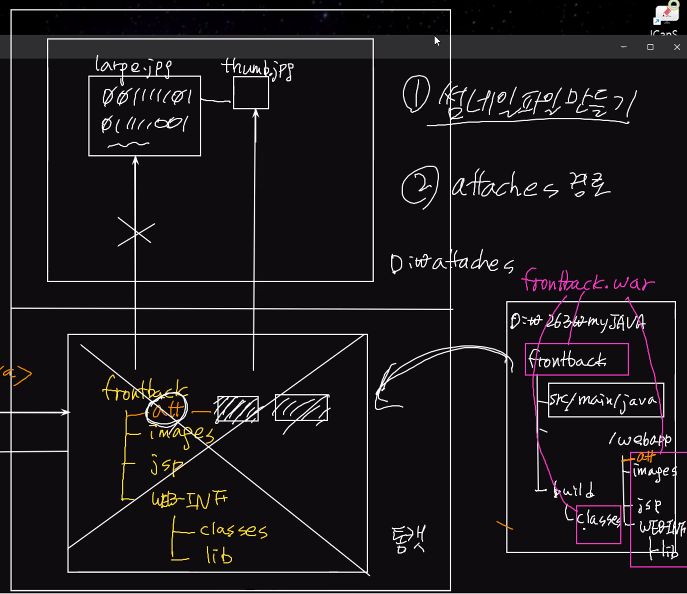 large.jpg
thumb.jpg
001111101
01111001
① 썸네일파일만들기
② attaches 경로
D:₩attaches
frontback.war
D:₩263₩myJAVA
frontback
src/main/java
/webapp
att
images
jsp
WEB-INF
lib
build
classes
<a>
frontback
att
images
jsp
WEB-INF
classes
lib
톰캣